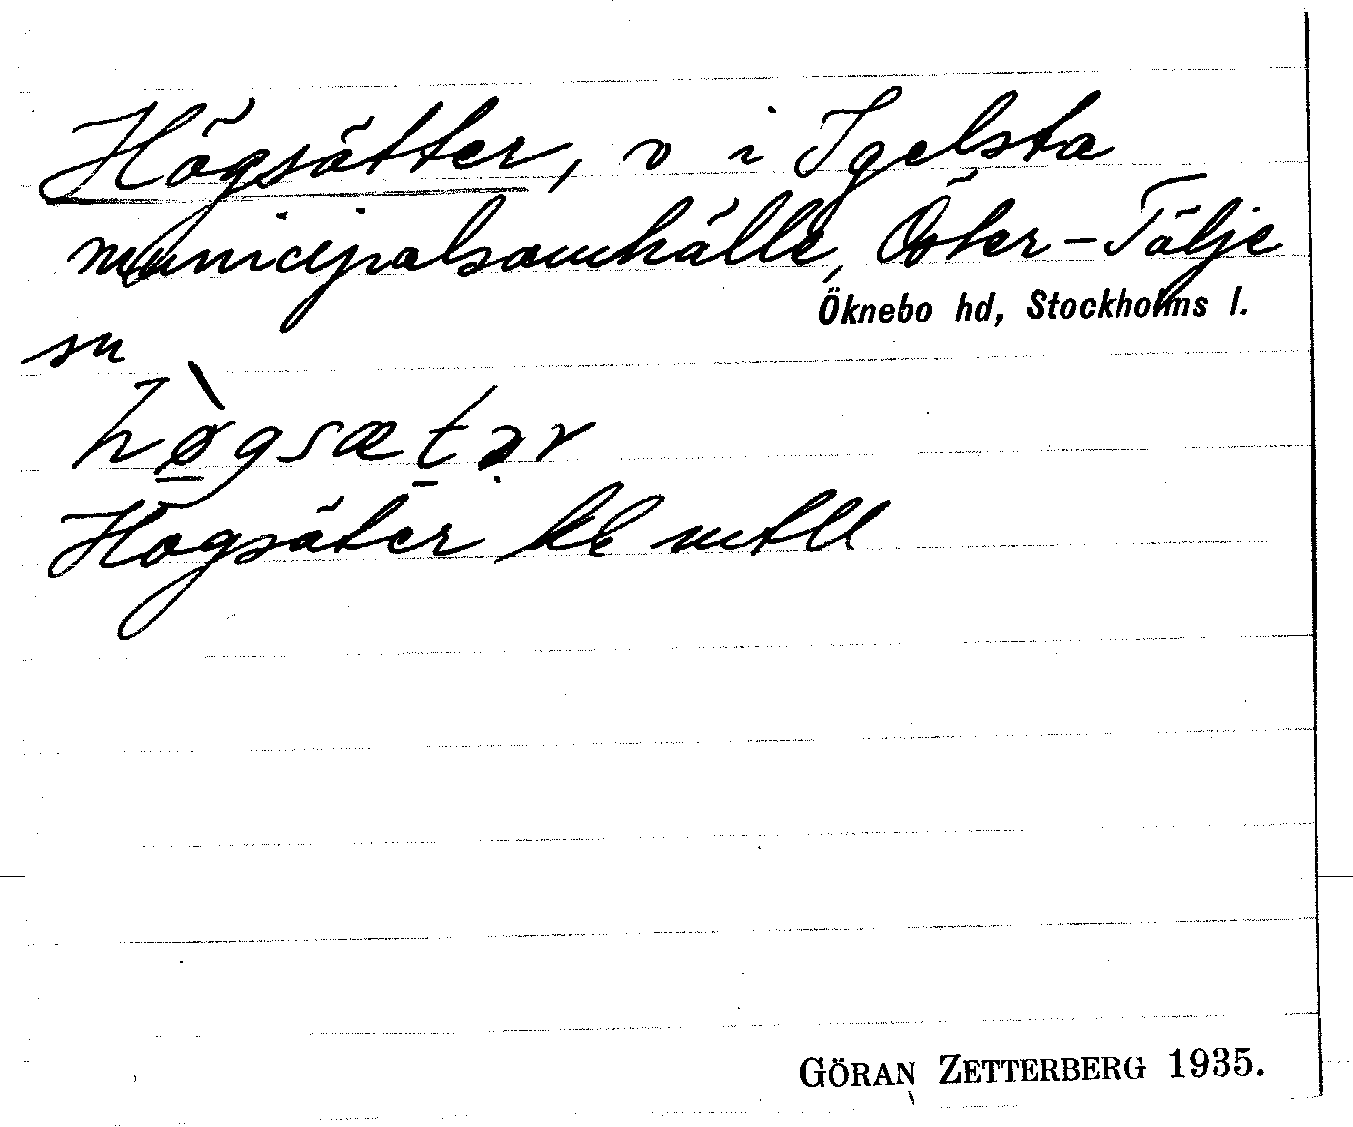 Högsätter, v i Igelsta
municipalsamhälle, Öster-Tälje
Öknebo hd, Stockholms l.
sn
hø̀gsætər
Högsäter
GÖRAN ZETTERBERG 1935.